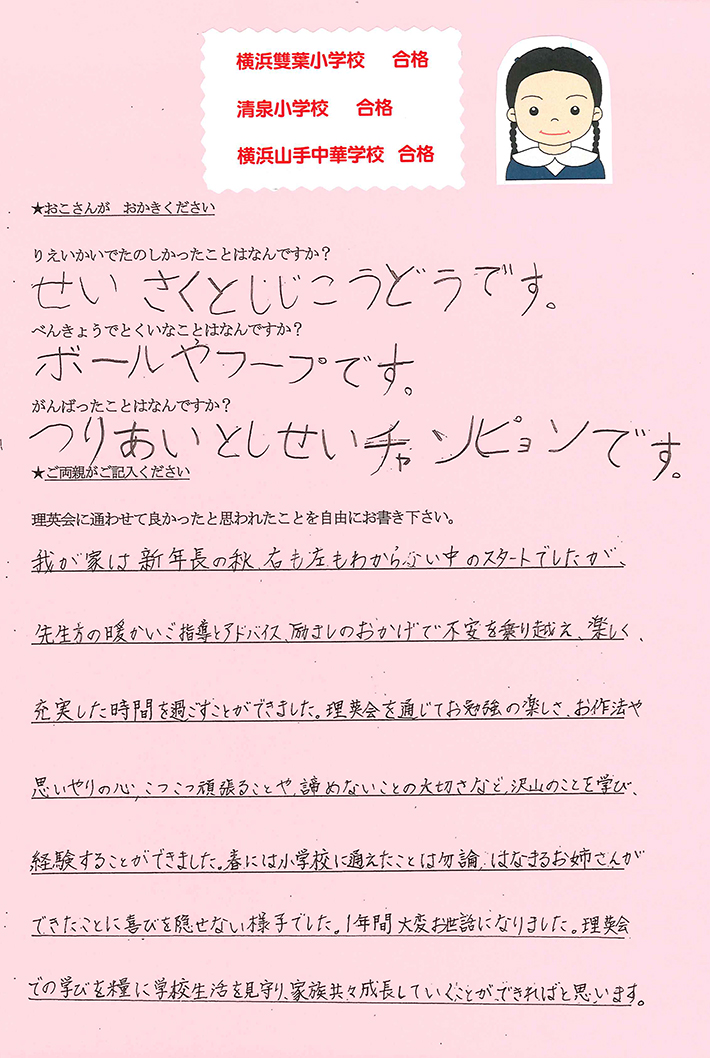 横浜雙葉小学校 合格
清泉小学校 合格
横浜山手中華学校 合格
★おこさんが おかきください
りえいかいでたのしかったことはなんですか？
せいさくとしじこうどうです。
べんきょうでとくいなことはなんですか？
ボールやフープです。
がんばったことはなんですか？
つりあいとしせいチャンピョンです。
★ご両親がご記入ください
理英会に通わせて良かったと思われたことを自由にお書き下さい。
我が家は新年長の秋、右も左もわからない中のスタートでしたが、
先生方の暖かいご指導とアドバイス、励ましのおかげで不安を乗り越え、楽しく、
充実した時間を過ごすことができました。理英会を通じてお勉強の楽しさ、お作法や
思いやりの心、こつこつ頑張ることや、諦めないことの大切さなど、沢山のことを学び、
経験することができました。春には小学校に通えたことは勿論、はなまるお姉さんが
できたことに喜びを隠せない様子でした。1年間大変お世話になりました。理英会
での学びを糧に学校生活を見守り、家族共々成長していくことができればと思います。